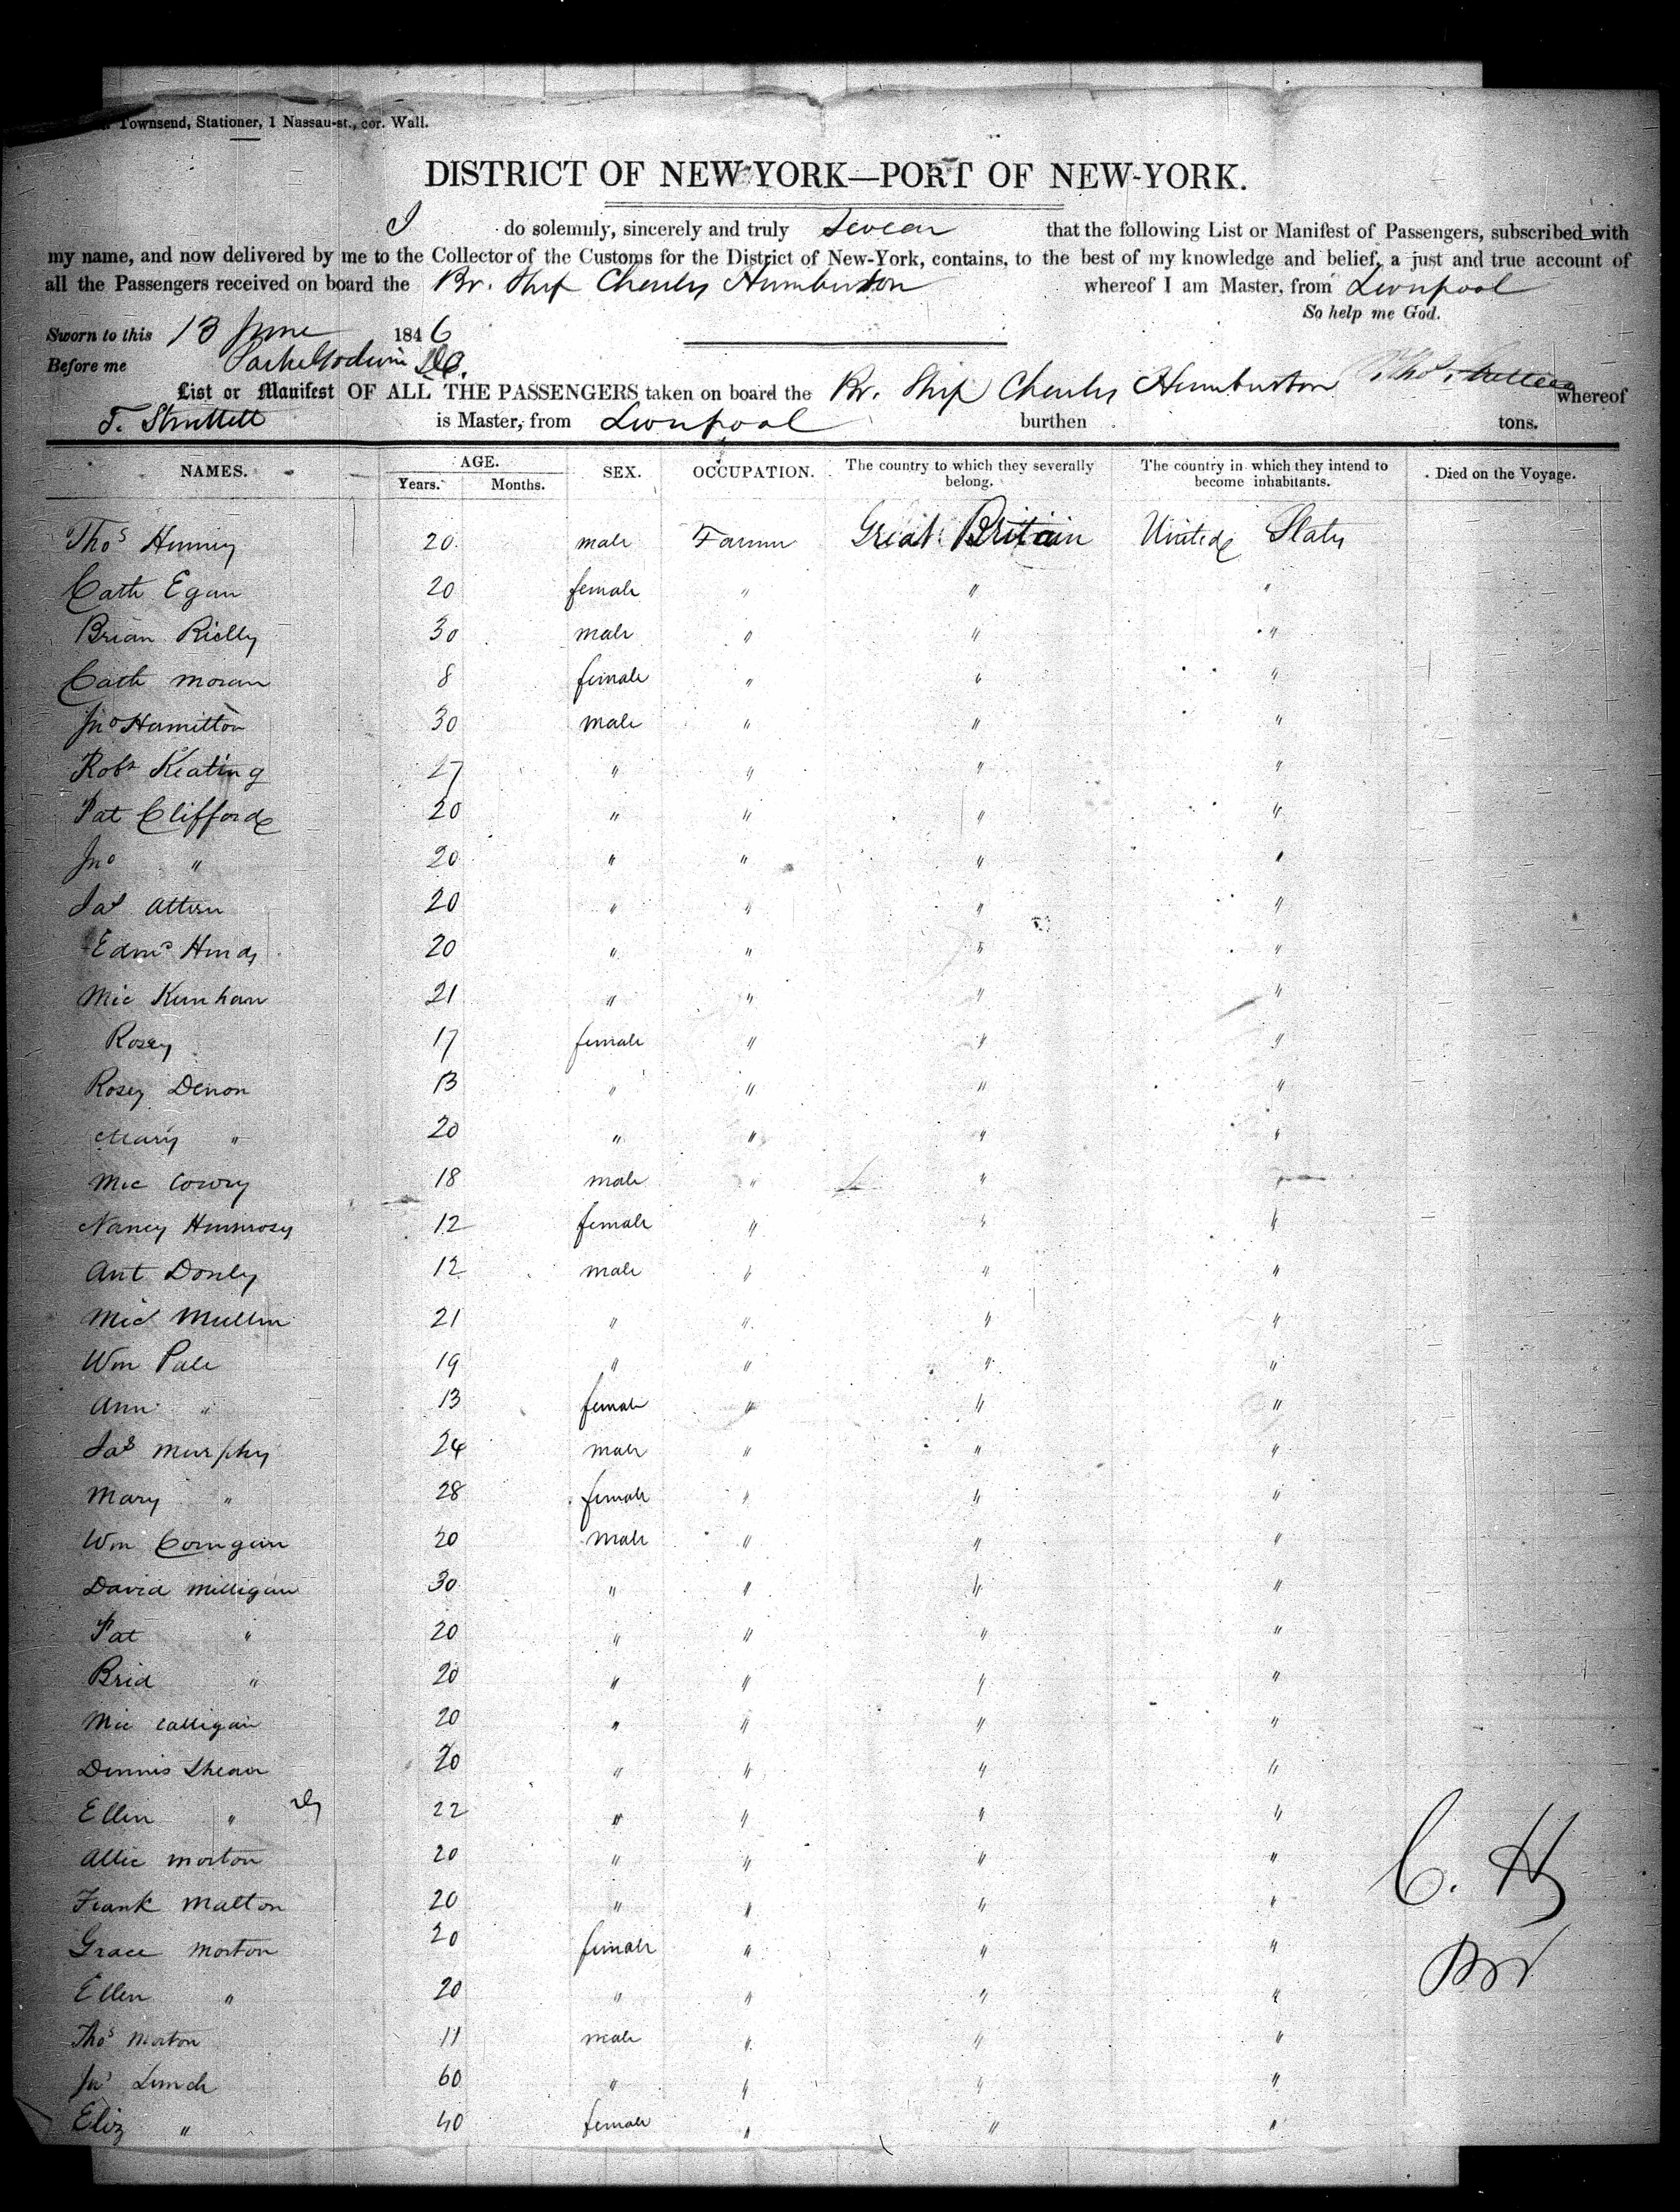 Townsend, Stationer, 1 Nassau-st., cor. Wall.
DISTRICT OF NEW-YORK—PORT OF NEW-YORK.
I do solemnly, sincerely and truly Swear that the following List or Manifest of Passengers, subscribed with
my name, and now delivered by me to the Collector of the Customs for the District of New-York, contains, to the best of my knowledge and belief, a just and true account of
all the Passengers received on board the Br. Ship Charles Humberston whereof I am Master, from Liverpool
So help me God.
Sworn to this 13 June 1846
Before me Parke Godwin
List or Manifest OF ALL THE PASSENGERS taken on board the Br. Ship Charles Humberston whereof
T. Struttett is Master, from Liverpool burthen tons.
NAMES. AGE. SEX. OCCUPATION. The country to which they severally belong. The country in which they intend to become inhabitants. Died on the Voyage.
Years. Months.
Thos 20 male Farmer Great Britain United States
Cath Egan 20 female " " "
Brian Rielly 30 male " " "
Cath Moran 8 female " " "
Jno Hamilton 30 male " " "
Robt Keating 27 " " " "
Pat Clifford 20 " " " "
Jno " 20 " " " "
Jas 20 " " " "
Edmd Hinds 20 " " " "
Mic 21 " " " "
Rosey 17 female " " "
Rosey Denon 13 " " " "
Mary " 20 " " " "
Mic Cowry 18 male " " "
Nancy 12 female " " "
Ant Donly 12 male " " "
Mic Mullin 21 " " " "
Wm Pale 19 " " " "
Ann " 13 female " " "
Jas Murphy 24 male " " "
Mary " 28 female " " "
Wm Corrigan 20 male " " "
David Milligan 30 " " " "
Pat " 20 " " " "
Brid " 20 " " " "
Mic Calligan 20 " " " "
Dennis Shean 20 " " " "
Ellen " 22 " " " "
Allic Morton 20 " " " "
Frank Malton 20 " " " "
Grace Morton 20 female " " "
Ellen " 20 " " " "
Thos Morton 11 male " " "
Jno Linch 60 " " " "
Eliz " 40 female " " "
C. H